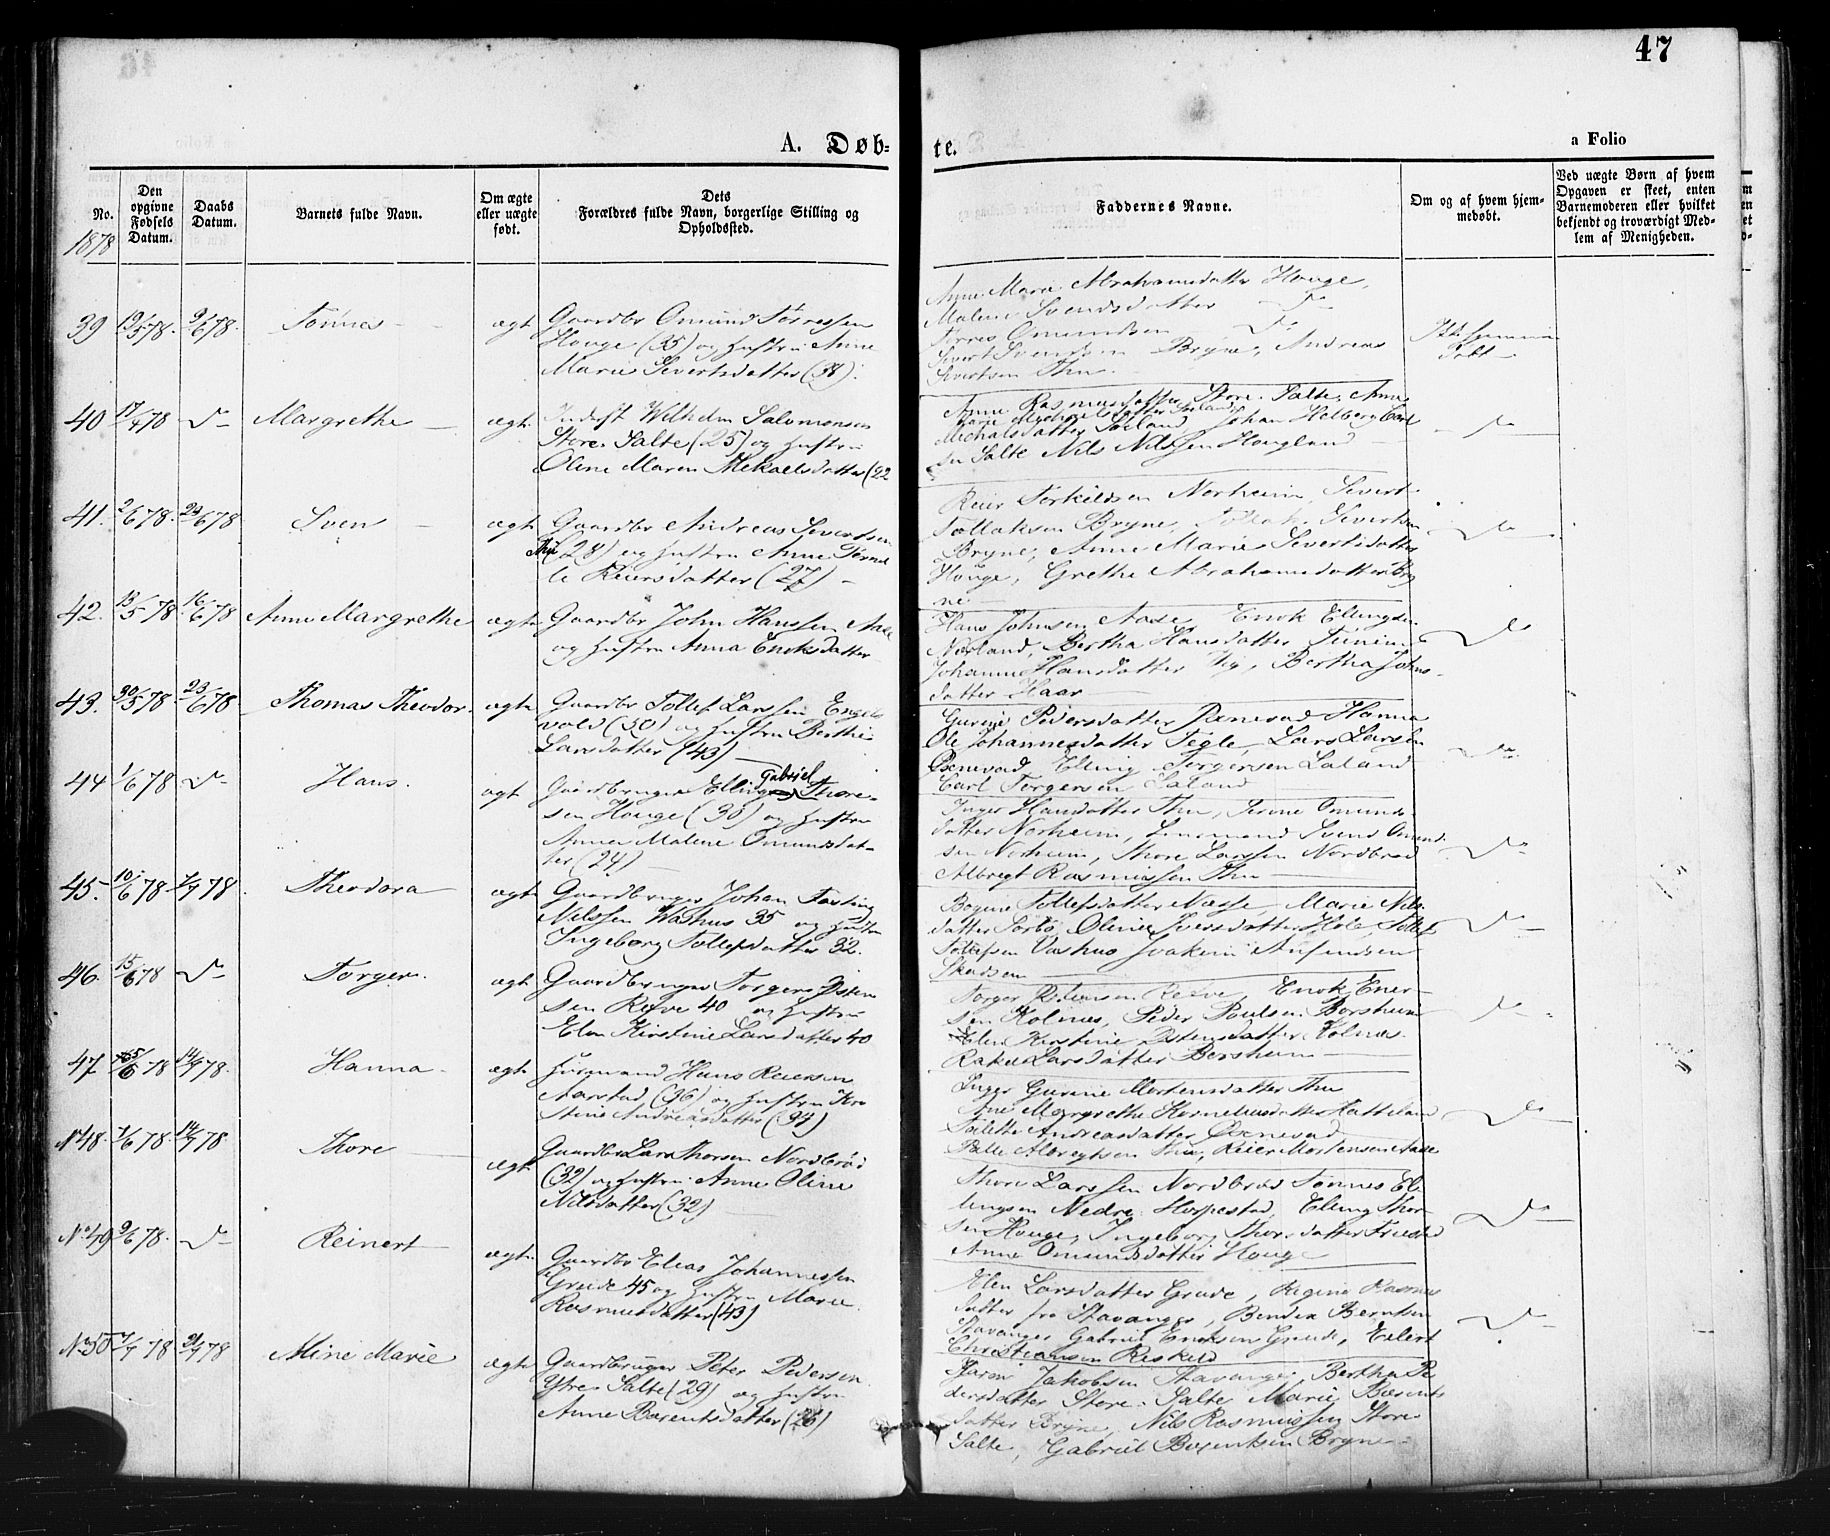 47
A. Døb-
te.
a Folio
No.
Den opgivne Fødsels Datum.
Daabs Datum.
Barnets fulde Navn.
Om ægte eller uægte født.
Dets Forældres fulde Navn, borgerlige Stilling og Opholdssted.
Faddernes Navne.
Om og af hvem hjem-
medøbt.
Ved uægte Børn af hvem
Opgaven er skeet, enten
Barnemoderen eller hvilket
bekjendt og troværdigt Med-
lem af Menigheden.
1878
39 19/5 78. 9/6 78. Tønnes ægt Gaardbr Omund Tørressen
Houge (35) og Hustru Anne
Marie Sivertsdatter (38).
Anne Marie Abrahamsdatter Houge,
Malene Svendsdatter
Tørres Omundsen
Sivert Svendsen Bryne, Andreas
Sivertsen Thu.
40 17/4 78 Margrethe ægt Inderst Wilhelm Salomonsen
Store Salte (25) og Hustru
Oline Maren Mekaelsdatter (22
Anne Rasmusdatter Store Salte, Anne
Salte Nils Nilssen Hougland
41. 2/6 78. 23/6 78 Sven ægt Gaardbr Andreas Sivertsen
Thu (28) og Hustru Anne Torne
le Reiersdatter (27)
Reier Torkildsen Norheim, Sivert
Tollaksen Bryne, Tollak Sivertsen
Bryne, Anne Marie Sivertsdatter
Houge, Grethe Abrahamsdatter Bry
ne
42. 13/5 78 16/6 78 Anne Margrethe ægt Gaardbr John Hanssen Aase
og Hustru Anna Enoksdatter
Hans Johnsen Aase, Enok Elingsen
Nærland, Bertha Hansdatter
Johanne Hansdatter Bertha Johns-
datter Haar
43. 30/5 78 23/6 78 Thomas Theodor. ægt Gaardbr Tollef Larssen Engels
vold (30) og Hustru Berthe
Larsdatter (43)
Gurine Pedersdatter Øxnevad Hanna
Ole Johannesdatter Tegle Lars Larsen
Øxnevad Elling Torgersen Laland
Carl Torgersen Laland
44 1/6 78 Hans. ægt Gaardbruger Elling Gabriel Thore-
sen Houge (30) og Hustru
Anna Malene Omundsdat-
ter (24)
Inger Hansdatter Thu, Serine Omunds-
datter Norheim, Svend Omund-
sen Norheim, Thore Larssen Nordbrød
Albregt Rasmussen Thu
45. 10/6 78 7/7 78 Theodora ægt Gaardbruger Johan Fasting
Nilssen Washus 35 og Hustru
Ingeborg Tollefsdatter 32.
Bogine Tollefsdatter Næsse, Marie Nils-
datter Sørbø, Oline Iversdatter Hole, Tollef
Tollefsen Vashus Joakim
46. 15/6 78 Torger. ægt Gaardbruger Torger Østen
sen Refve 40 og Hustru
Elen Kirstine Larsdatter 40
Torger Østensen Refve, Enok Ener-
sen Holnæs, Peder Paulsen Borsheim
Elen Kirstine Østensdatter Holnæs
Rakel Larsdatter Borsheim
47. 78 14/7 78. Hanna. ægt Husmand Hans Reiersen
Aarstad (36) og Hustru Kir
stine Andreasdatter (34)
Inger Gurine Mortensdatter Thu
Ane Margrethe Kornelius datter
Andreasdatter Øxnevad
Palle Albregtsen Thu, Reier Mortensen Aase
No 48. 7/6 78 14/7 78. Thore ægt Gaardbr Lars Thorsen Nordbrød
(32) og Hustru Anne Oline
Nilsdatter (32)
Thore Larssen Nordbrød Tønnes El-
lingsen Nedre Horpestad, Elling Thor-
sen Houge, Ingeborg Thorsdatter Friestad
Anne Omundsdatter Houge
No 49 9/6 78. Reinert ægt Gaardbr Elias Johannessen
Grude 45 og Hustru Marie
Rasmusdatter (43)
Elen Larsdatter Grude, Regine Rasmus
datter fra Stavanger, Bendix Berntsen
Stavanger Gabriel Enoksen Grude, Eilert
Christiansen
No 50 7/7 78 21/7 78 Mine Marie ægt Gaardbruger Peter Pedersen
Ytre Salte (29) og Hustru
Anne Barentsdatter (26)
Jakobsen Stavanger, Bertha Pe
dersdatter Store Salte Marie Barents
datter Bryne, Nils Rasmussen Store
Salte, Gabriel Barentsen Bryne